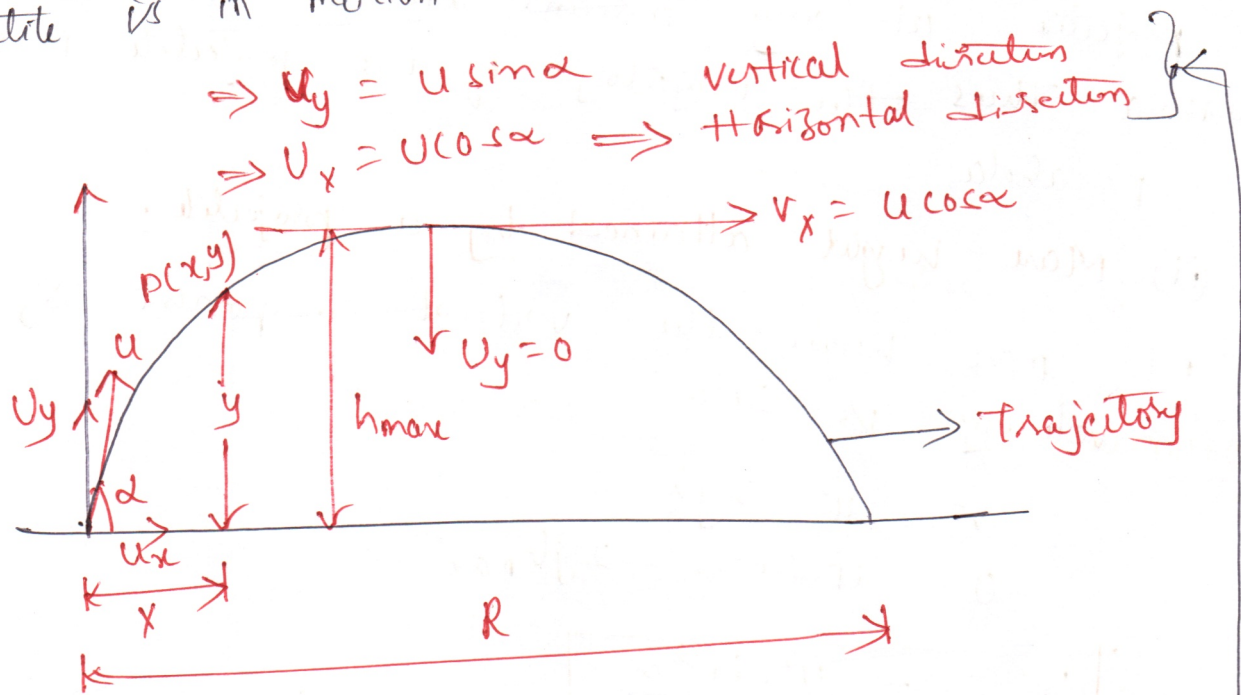 is in
⇒ Uy = U sinα vertical direction
⇒ Ux = U cosα ⇒ Horizontal direction
Vx = U cosα
P(x,y)
U
Uy = 0
Uy
y
hmax
Trajectory
α
Ux
X
R